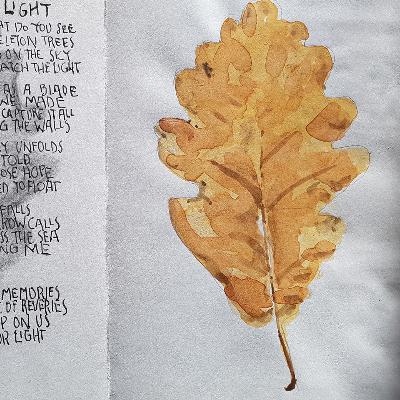 LIGHT
AT DO YOU SEE
ELETON TREES
ON THE SKY
ATCH THE LIGHT
AS A BLADE
WE MADE
CAPTURE IT ALL
G THE WALLS
Y UNFOLDS
TOLD
OSE HOPE
ED TO FLOAT
FALLS
ROW CALLS
SS THE SEA
NG ME
MEMORIES
E OF REVERIES
P ON US
OR LIGHT